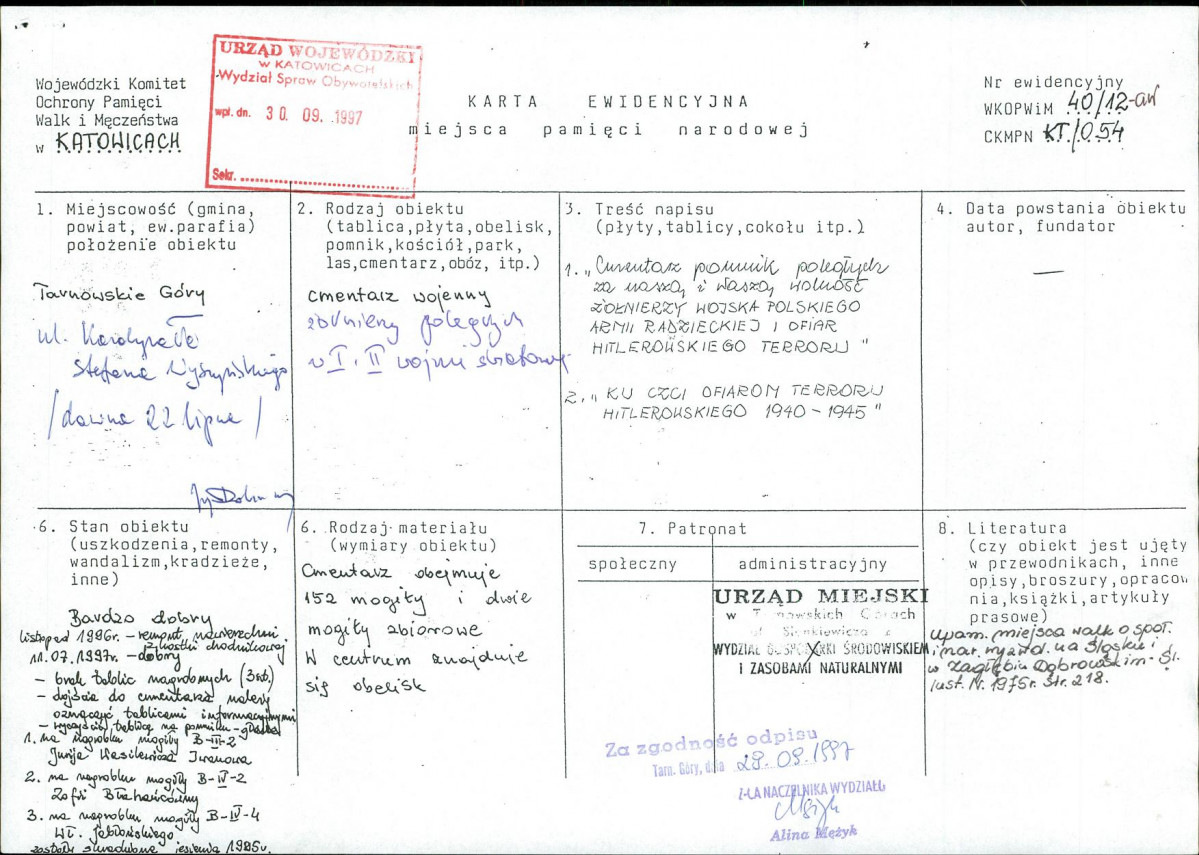 Wojewódzki Komitet
Ochrony Pamięci
Walk i Męczeństwa
w KATOWICACH
URZĄD WOJEWÓDZKI
w KATOWICACH
Wydział Spraw Obywatelskich
wpł. dn. 30. 09. 1997
Sekr.
KARTA EWIDENCYJNA
miejsca pamięci narodowej
Nr ewidencyjny
WKOPWiM 40/12-aw
CKMPN KT/054
1. Miejscowość (gmina,
powiat, ew.parafia)
położenie obiektu
Tarnowskie Góry
ul. Kardynała
Stefana Wyszyńskiego
/dawna 22 lipca/
2. Rodzaj obiektu
(tablica,płyta,obelisk,
pomnik,kościół,park,
las,cmentarz,obóz, itp.)
cmentarz wojenny
żołnierzy poległych
w I i II wojnie światowej
3. Treść napisu
(płyty,tablicy,cokołu itp.)
1. „Cmentarz pomnik poległych
za naszą i Waszą wolność
ŻOŁNIERZY WOJSKA POLSKIEGO
ARMII RADZIECKIEJ I OFIAR
HITLEROWSKIEGO TERRORU"
2. „KU CZCI OFIAROM TERRORU
HITLEROWSKIEGO 1940-1945"
4. Data powstania obiektu
autor, fundator
—
6. Stan obiektu
(uszkodzenia,remonty,
wandalizm,kradzieże,
inne)
Bardzo dobry
listopad 1996r. - remont nawierzchni
z kostki chodnikowej
11.07.1997r. - dobry
- brak tablic nagrobnych (3szt.)
- dojścia do cmentarza należy
oznaczyć tablicami informacyjnymi
- wyczyścić tablicę na pomniku
1. na nagrobku mogiły B-III-2
Jurija Wasilewicza Iwanowa
2. na nagrobku mogiły B-IV-2
Zofii
3. na nagrobku mogiły B-IV-4
Wł. Jabłońskiego
zostały skradzione jesienią 1995r.
6. Rodzaj materiału
(wymiary obiektu)
Cmentarz obejmuje
152 mogiły i dwie
mogiły zbiorowe
W centrum znajduje
się obelisk
7. Patronat
społeczny
administracyjny
URZĄD MIEJSKI
w Tarnowskich Górach
ul. Sienkiewicza 2
WYDZIAŁ GOSPODARKI ŚRODOWISKIEM
I ZASOBAMI NATURALNYMI
Za zgodność odpisu
Tarn. Góry, dnia 29.09.1997
Z-CA NACZELNIKA WYDZIAŁU
Alina Mężyk
8. Literatura
(czy obiekt jest ujęty
w przewodnikach, inne
opisy,broszury,opracow
nia,książki,artykuły
prasowe)
Upam. miejsca walk o społ.
i nar. wyzwol. na Śląsku i
w Zagłębiu Dąbrowskim - Śl.
Inst. N. 1975r. str. 218.